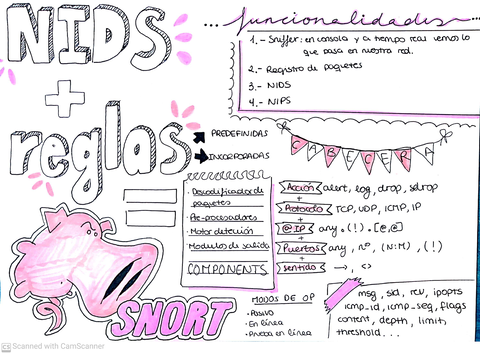 NIDS
+
reglas
=
SNORT
PREDEFINIDAS
INCORPORADAS
Funcionalidades
1.- Sniffer: en consola y a tiempo real vemos lo
que pasa en nuestra red.
2.- Registro de paquetes
3.- NIDS
4.- NIPS
CABECERA
Acción alert, log, drop, sdrop
+
Protocolo TCP, UDP, ICMP, IP
+
@IP any, (!), [@,@]
+
Puertos any, nº, (N:M), (!)
+
sentido →, <>
· Decodificador de
paquetes
· Pre-procesadores
· Motor detención
· Modulos de salida
COMPONENTS
MODOS DE OP
· Pasivo
· En línea
· Prueba en línea
msg, sid, rev, ipopts
icmp_id, icmp_seq, flags
content, depth, limit,
threshold...
Scanned with CamScanner